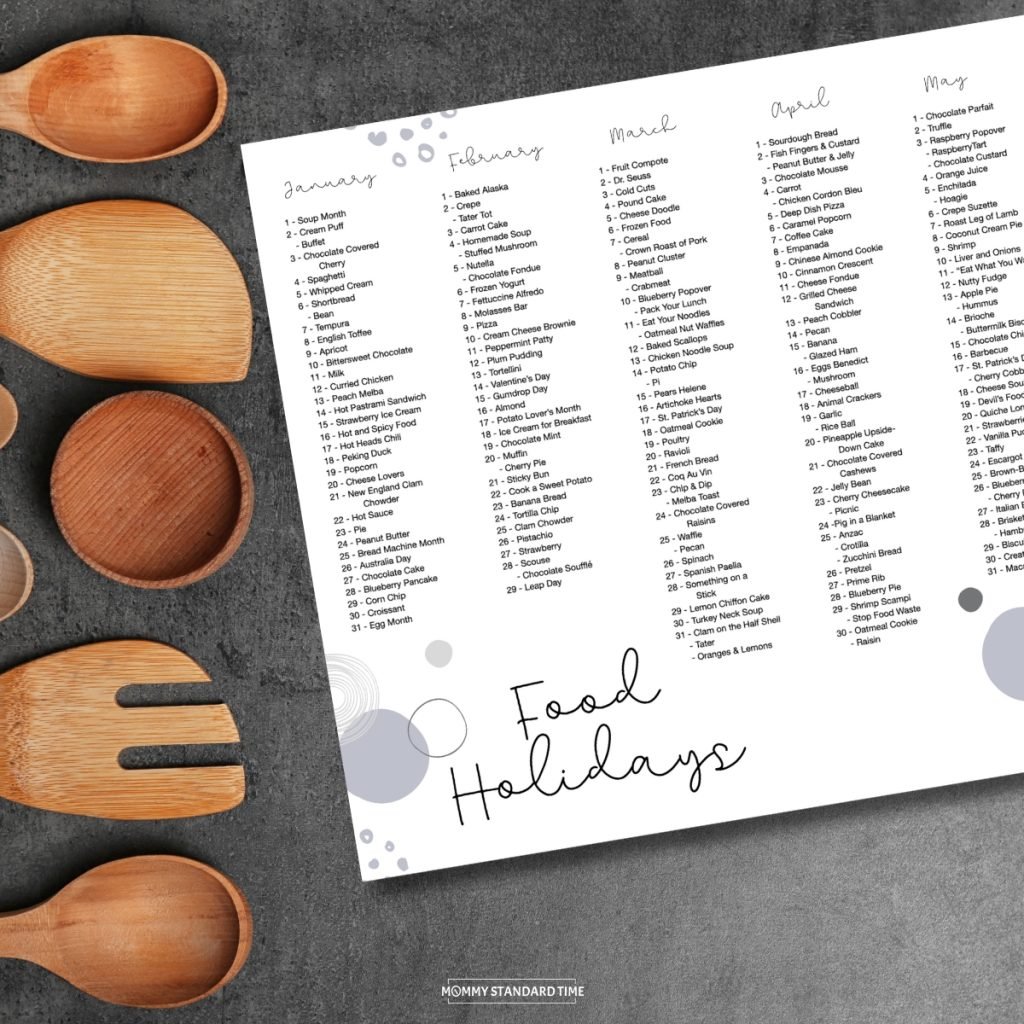 January
1 - Soup Month
2 - Cream Puff
- Buffet
3 - Chocolate Covered
Cherry
4 - Spaghetti
5 - Whipped Cream
6 - Shortbread
- Bean
7 - Tempura
8 - English Toffee
9 - Apricot
10 - Bittersweet Chocolate
11 - Milk
12 - Curried Chicken
13 - Peach Melba
14 - Hot Pastrami Sandwich
15 - Strawberry Ice Cream
16 - Hot and Spicy Food
17 - Hot Heads Chili
18 - Peking Duck
19 - Popcorn
20 - Cheese Lovers
21 - New England Clam
Chowder
22 - Hot Sauce
23 - Pie
24 - Peanut Butter
25 - Bread Machine Month
26 - Australia Day
27 - Chocolate Cake
28 - Blueberry Pancake
29 - Corn Chip
30 - Croissant
31 - Egg Month
February
1 - Baked Alaska
2 - Crepe
- Tater Tot
3 - Carrot Cake
4 - Homemade Soup
- Stuffed Mushroom
5 - Nutella
- Chocolate Fondue
6 - Frozen Yogurt
7 - Fettuccine Alfredo
8 - Molasses Bar
9 - Pizza
10 - Cream Cheese Brownie
11 - Peppermint Patty
12 - Plum Pudding
13 - Tortellini
14 - Valentine's Day
15 - Gumdrop Day
16 - Almond
17 - Potato Lover's Month
18 - Ice Cream for Breakfast
19 - Chocolate Mint
20 - Muffin
- Cherry Pie
21 - Sticky Bun
22 - Cook a Sweet Potato
23 - Banana Bread
24 - Tortilla Chip
25 - Clam Chowder
26 - Pistachio
27 - Strawberry
28 - Scouse
- Chocolate Soufflé
29 - Leap Day
March
1 - Fruit Compote
2 - Dr. Seuss
3 - Cold Cuts
4 - Pound Cake
5 - Cheese Doodle
6 - Frozen Food
7 - Cereal
- Crown Roast of Pork
8 - Peanut Cluster
9 - Meatball
- Crabmeat
10 - Blueberry Popover
- Pack Your Lunch
11 - Eat Your Noodles
- Oatmeal Nut Waffles
12 - Baked Scallops
13 - Chicken Noodle Soup
14 - Potato Chip
- Pi
15 - Pears Helene
16 - Artichoke Hearts
17 - St. Patrick's Day
18 - Oatmeal Cookie
19 - Poultry
20 - Ravioli
21 - French Bread
22 - Coq Au Vin
23 - Chip & Dip
- Melba Toast
24 - Chocolate Covered
Raisins
25 - Waffle
- Pecan
26 - Spinach
27 - Spanish Paella
28 - Something on a
Stick
29 - Lemon Chiffon Cake
30 - Turkey Neck Soup
31 - Clam on the Half Shell
- Tater
- Oranges & Lemons
April
1 - Sourdough Bread
2 - Fish Fingers & Custard
- Peanut Butter & Jelly
3 - Chocolate Mousse
4 - Carrot
- Chicken Cordon Bleu
5 - Deep Dish Pizza
6 - Caramel Popcorn
7 - Coffee Cake
8 - Empanada
9 - Chinese Almond Cookie
10 - Cinnamon Crescent
11 - Cheese Fondue
12 - Grilled Cheese
Sandwich
13 - Peach Cobbler
14 - Pecan
15 - Banana
- Glazed Ham
16 - Eggs Benedict
- Mushroom
17 - Cheeseball
18 - Animal Crackers
19 - Garlic
- Rice Ball
20 - Pineapple Upside-
Down Cake
21 - Chocolate Covered
Cashews
22 - Jelly Bean
23 - Cherry Cheesecake
- Picnic
24 -Pig in a Blanket
25 - Anzac
- Crotilla
- Zucchini Bread
26 - Pretzel
27 - Prime Rib
28 - Blueberry Pie
29 - Shrimp Scampi
- Stop Food Waste
30 - Oatmeal Cookie
- Raisin
May
1 - Chocolate Parfait
2 - Truffle
3 - Raspberry Popover
- RaspberryTart
- Chocolate Custard
4 - Orange Juice
5 - Enchilada
- Hoagie
6 - Crepe Suzette
7 - Roast Leg of Lamb
8 - Coconut Cream Pie
9 - Shrimp
10 - Liver and Onions
11 - "Eat What You Wa
12 - Nutty Fudge
13 - Apple Pie
- Hummus
14 - Brioche
- Buttermilk Bisc
15 - Chocolate Chi
16 - Barbecue
17 - St. Patrick's D
- Cherry Cobb
18 - Cheese Sou
19 - Devil's Food
20 - Quiche Lor
21 - Strawberrie
22 - Vanilla Pud
23 - Taffy
24 - Escargot
25 - Brown-B
26 - Blueberr
- Cherry
27 - Italian B
28 - Brisket
- Hamb
29 - Biscu
30 - Creat
31 - Mac
Food
Holidays
MOMMY STANDARD TIME